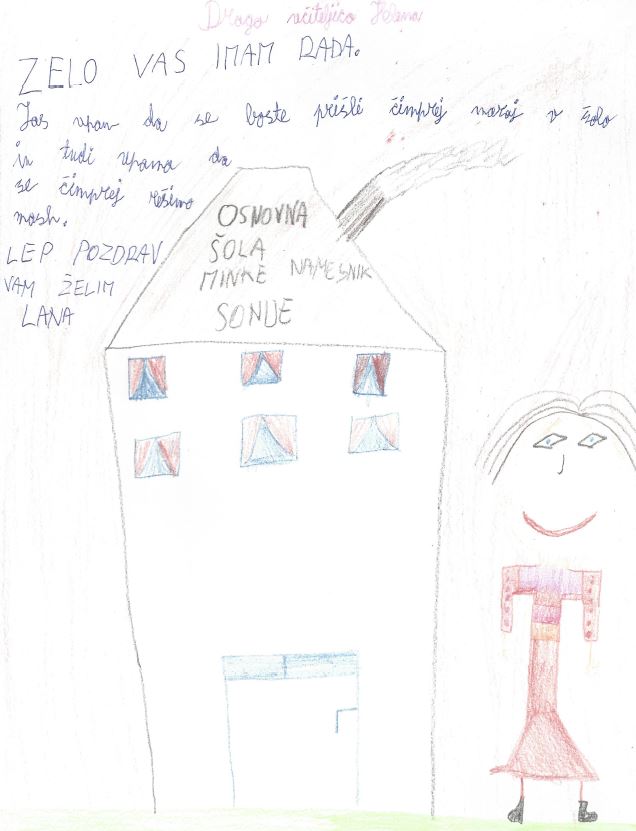 Draga učiteljico Helena
ZELO VAS IMAM RADA.
Jas upam da se boste prišli čimprej nazaj v šolo
in tudi upama da
se čimprej rešimo
mash.
LEP POZDRAV
VAM ŽELIM
LANA
OSNOVNA
ŠOLA
MINKE NAMESNIK
SONJE